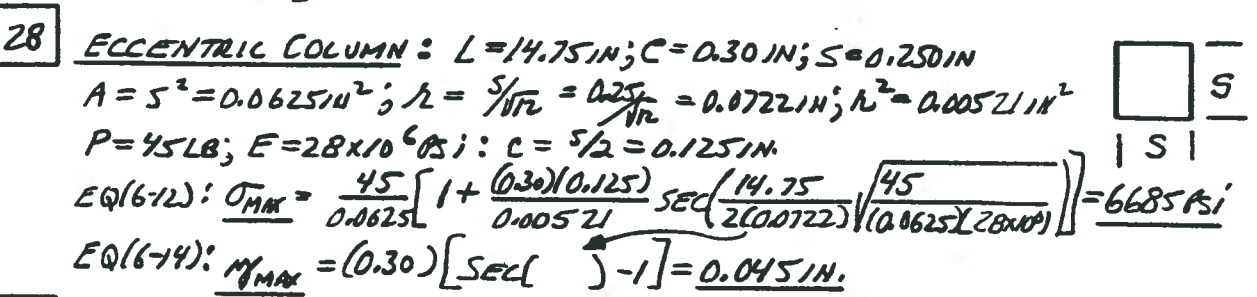 28 ECCENTRIC COLUMN: L=14.75 IN; e=0.30 IN; S=0.250 IN
A = S²=0.0625 IN²; r = S/√12 = 0.25/√12 = 0.0722 IN; r²=0.00521 IN²
S
P=45 LB; E=28×10⁶ PSi: c = S/2 = 0.125 IN.
S
EQ(6-12): σMAX = 45/0.0625 [1 + (0.30)(0.125)/0.00521 SEC(14.75/2(0.0722) √45/(0.0625)(28×10⁶))] = 6685 PSi
EQ(6-14): yMAX = (0.30)[SEC( )-1] = 0.045 IN.